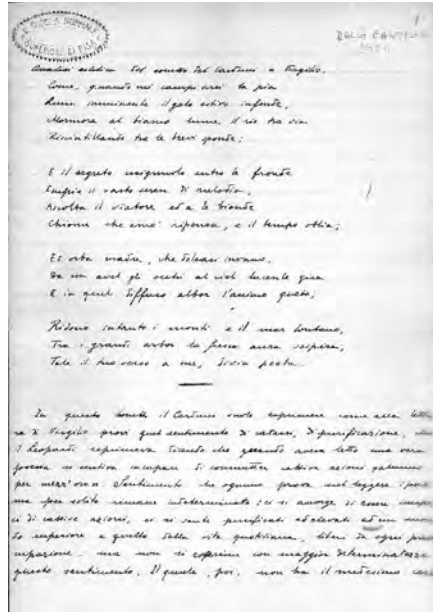 R. SCUOLA NORMALE
SUPERIORE DI PISA
DELIO CANTIMORI
Analisi estetica del sonetto del Carducci a Virgilio.
Come, quando su' campi arsi la pia
Luna imminente il gelo estivo infonde,
Mormora al bianco lume il rio tra via
Riscintillando tra le brevi sponde;
E il segreto usignuolo entro le fronde
Empie il vasto seren di melodia,
Ascolta il viatore ed a le bionde
Chiome che amò ripensa, e il tempo oblia;
Ed orba madre, che doleasi invano,
Da un avel gli occhi al ciel lucente gira
E in quel diffuso albor l'animo queta;
Ridono intanto i monti e il mar lontano,
Tra i grandi arbor la fresca aura sospira,
Tale il tuo verso a me, divin poeta.
In questo sonetto il Carducci vuole esprimere come alla lettu
ra di Virgilio provi quel sentimento di catarsi, di purificazione, che
il Leopardi esprimeva dicendo che quando aveva letto una vera
poesia si sentiva incapace di commetter cattive azioni almeno
per mezz'ora. Sentimento che ognuno prova nel leggere
ma per solito rimane indeterminato: ci si accorge di essere incapa
ci di cattive azioni, ci si sente purificati ed elevati ad un mon
do superiore a quello della vita quotidiana, liberi da ogni preoc
cupazione. ma non si esprime con maggior determinatezza
questo sentimento. Il quale, poi, non ha il medesimo